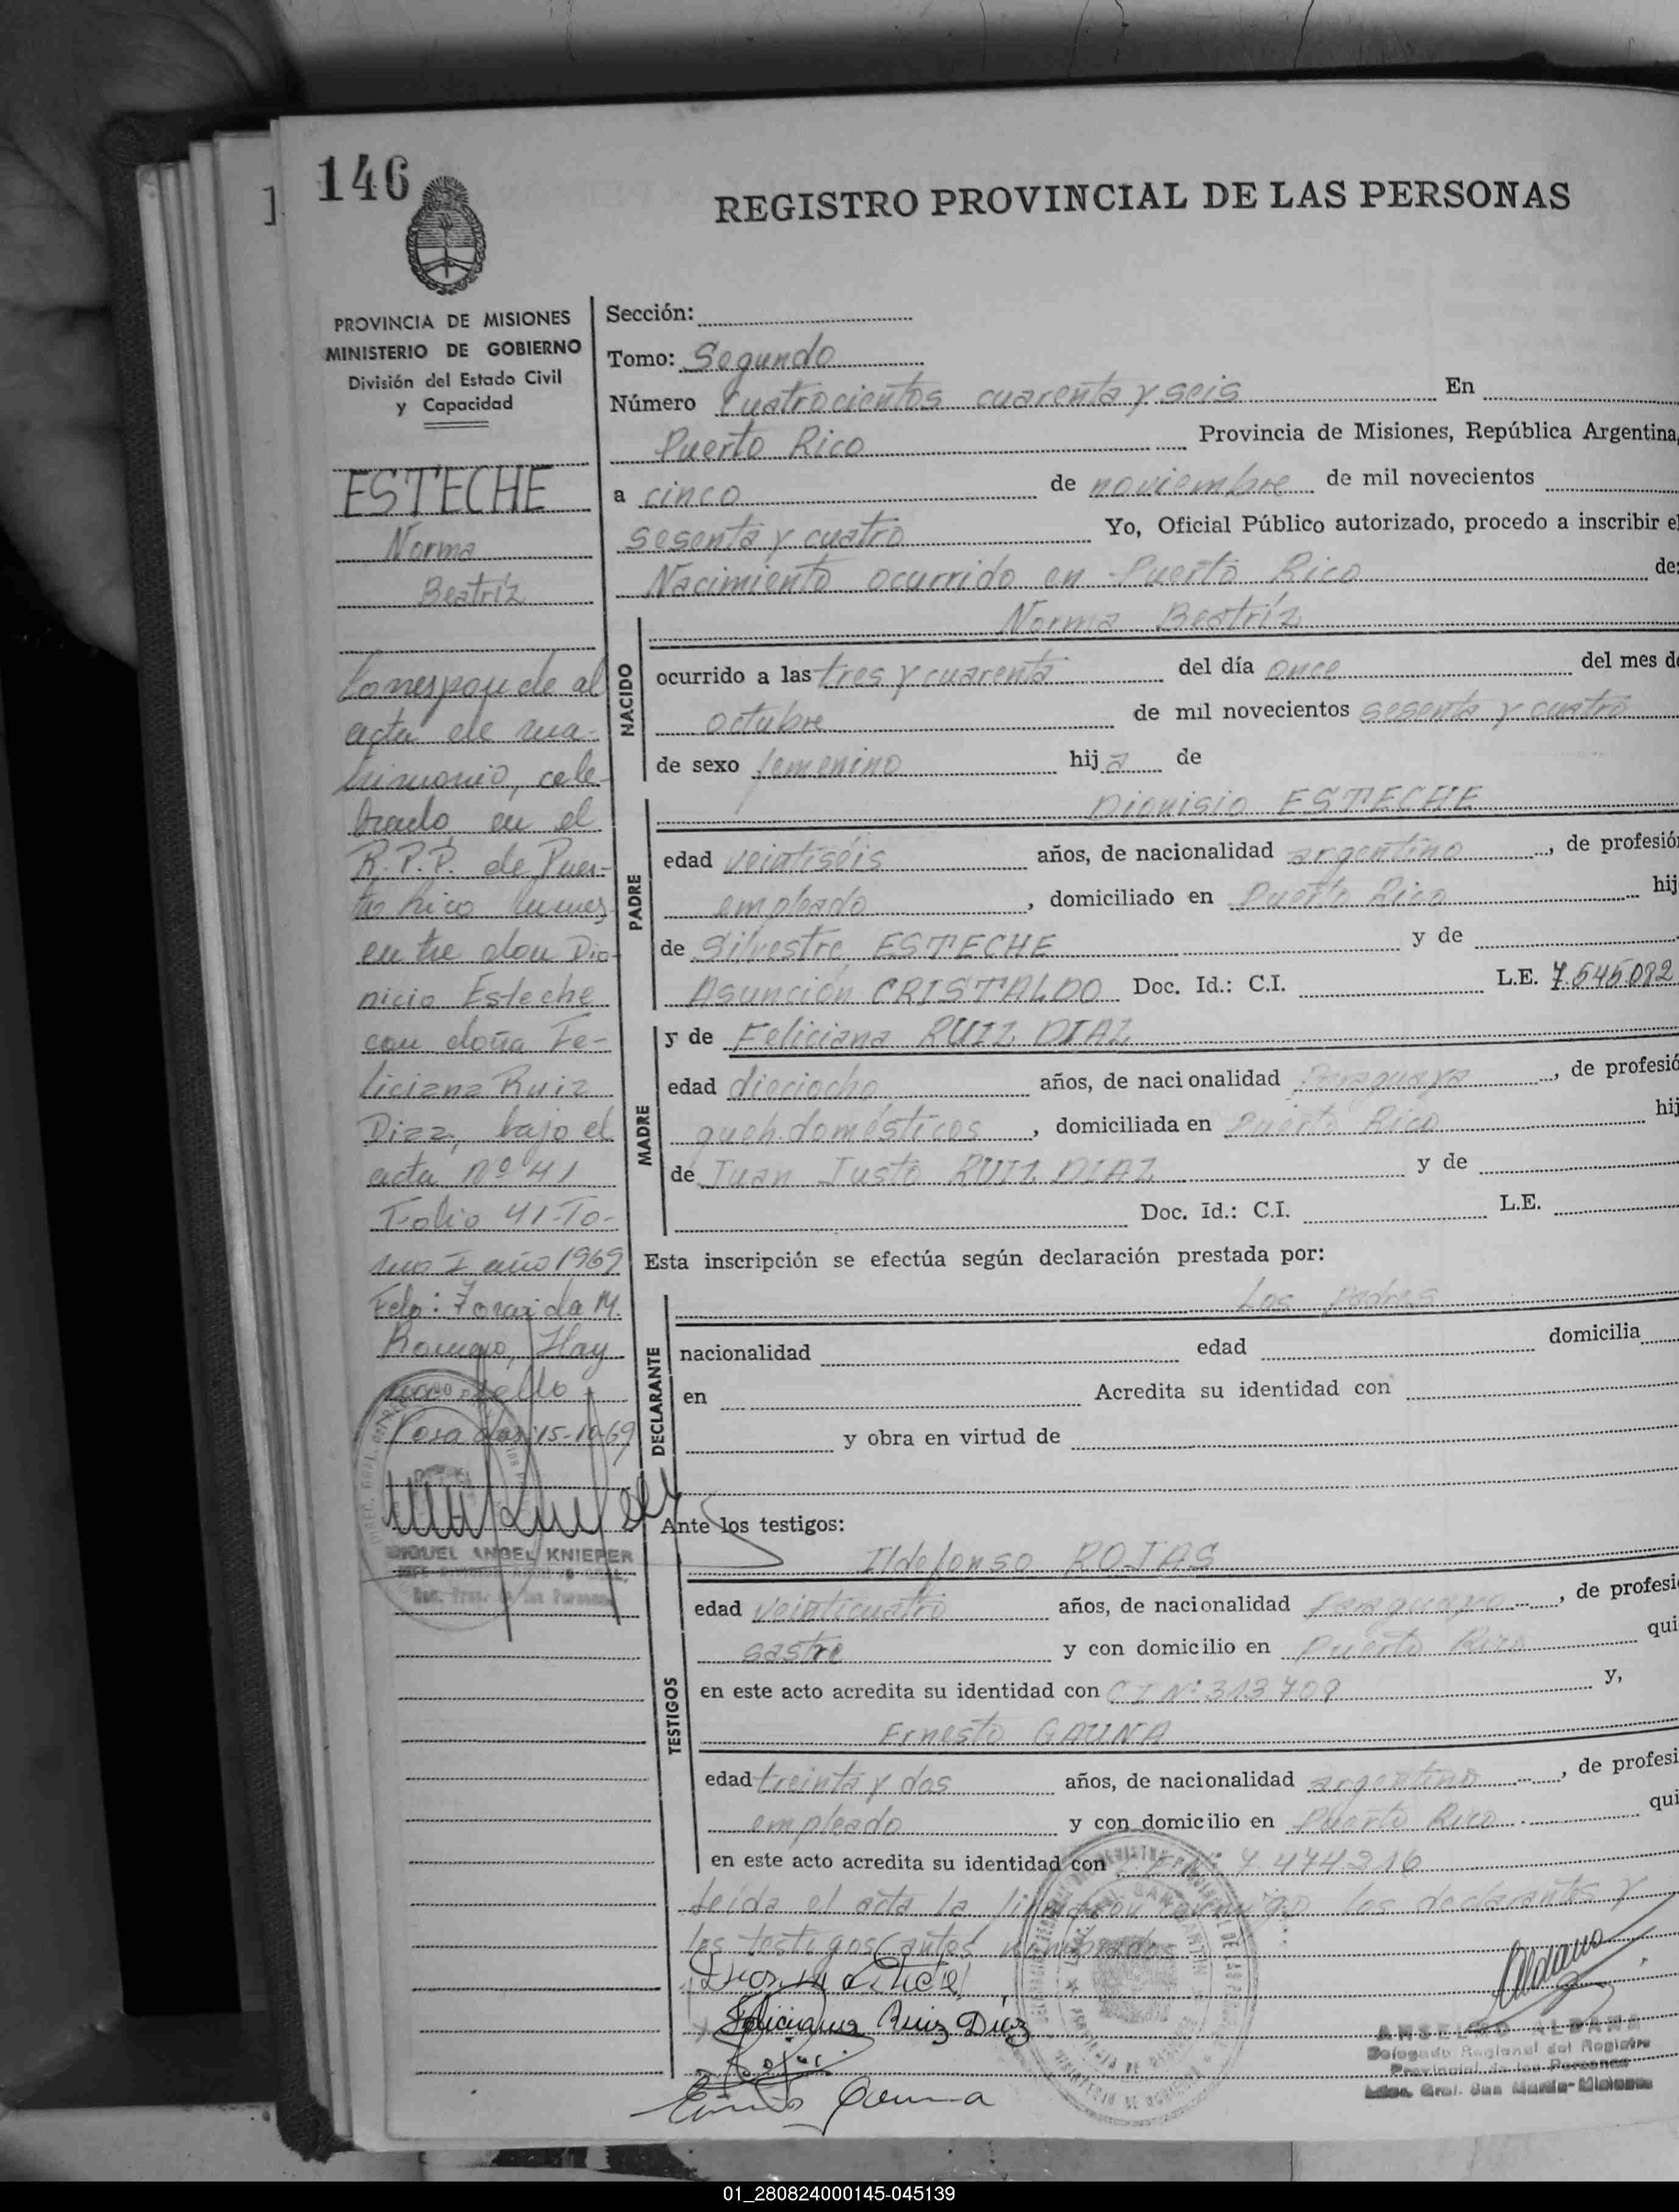 146
REGISTRO PROVINCIAL DE LAS PERSONAS
PROVINCIA DE MISIONES
MINISTERIO DE GOBIERNO
División del Estado Civil
y Capacidad
ESTECHE
Norma
Beatríz
Corresponde al
acta de ma-
trimonio, cele-
brado en el
R.P.P. de Puer-
to Rico
entre don Dio-
nicio Esteche
con doña Fe-
liciana Ruiz
Diaz, bajo el
acta Nº 41
Folio 41-To-
mo I año 1969
Fdo: Zoraida M.
Romero, Hay
un sello
Posadas, 15-10-69
MIGUEL ANGEL KNIEPER
Sección:
Tomo: Segundo
Número Cuatrocientos cuarenta y seis En
Puerto Rico Provincia de Misiones, República Argentina,
a cinco de noviembre de mil novecientos
sesenta y cuatro Yo, Oficial Público autorizado, procedo a inscribir el
Nacimiento ocurrido en Puerto Rico de:
Norma Beatríz
NACIDO
ocurrido a las tres y cuarenta del día once del mes de
octubre de mil novecientos sesenta y cuatro
de sexo femenino hija de
Dionisio ESTECHE
PADRE
edad veintiséis años, de nacionalidad argentino, de profesión
empleado, domiciliado en Puerto Rico hij
de Silvestre ESTECHE y de
Asunción CRISTALDO Doc. Id.: C.I. L.E. 7.545.082
y de Feliciana RUIZ DIAZ
MADRE
edad dieciocho años, de nacionalidad Paraguaya, de profesió
queh. domésticos, domiciliada en Puerto Rico hij
de Juan Justo RUIZ DIAZ y de
Doc. Id.: C.I. L.E.
Esta inscripción se efectúa según declaración prestada por:
Los padres
DECLARANTE
nacionalidad edad domicilia
en Acredita su identidad con
y obra en virtud de
Ante los testigos:
Ildefonso ROJAS
TESTIGOS
edad veinticuatro años, de nacionalidad Paraguayo, de profesi
sastre y con domicilio en Puerto Rico qui
en este acto acredita su identidad con C I Nº 313 709 y,
Ernesto GAUNA
edad treinta y dos años, de nacionalidad argentino, de profesi
empleado y con domicilio en Puerto Rico qui
en este acto acredita su identidad con L.E. Nº 7.474.216
Leída el acta la firmaron conmigo los declarantes y
los testigos antes nombrados
Feliciana Ruiz Díaz
Rojas
Ernesto Gauna
Aldana
ANSELMO ALDANA
Delegado Regional del Registro
Provincial de las Personas
Ldor. Gral. San Martín-Misiones
01_280824000145-045139